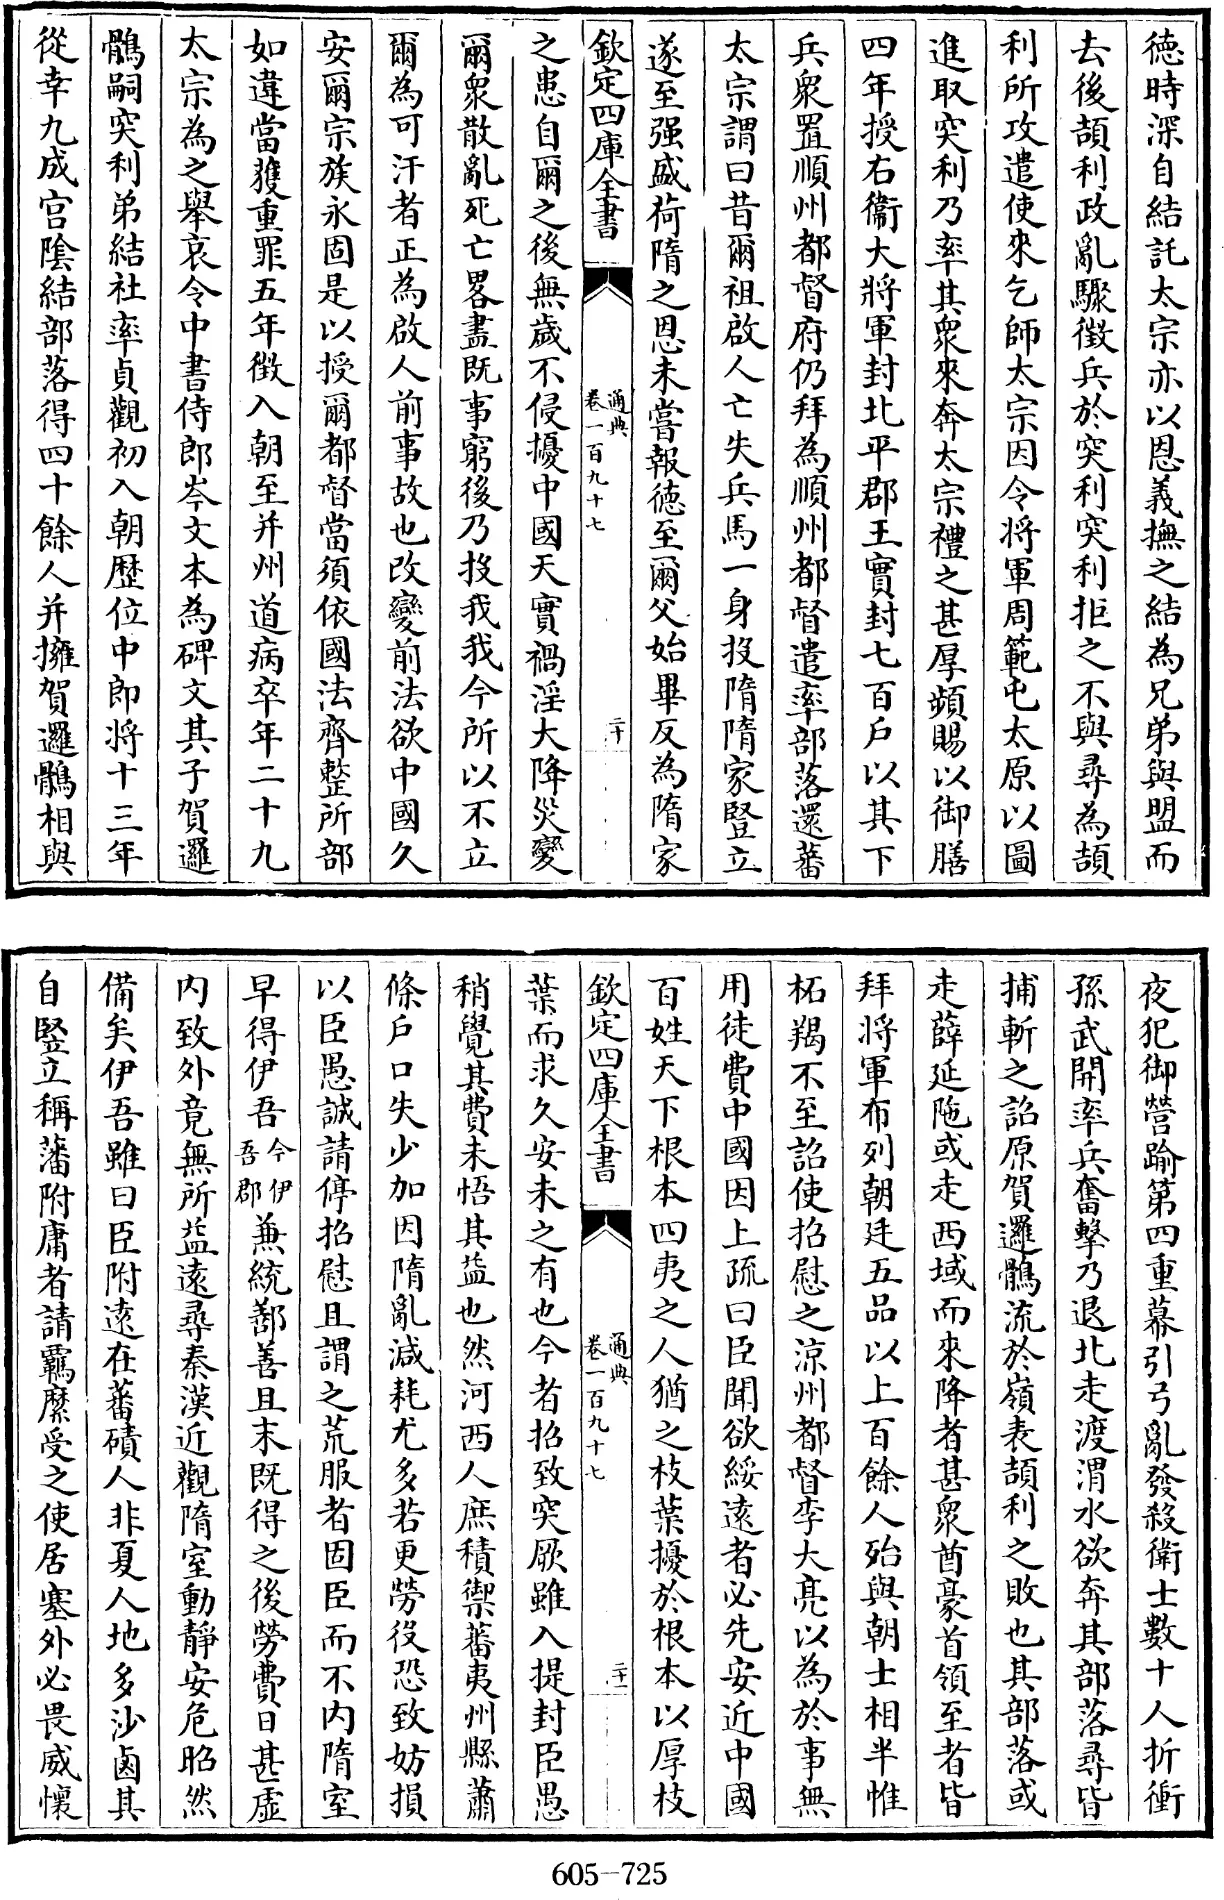 德時深自結託太宗亦以恩義撫之結為兄弟與盟而
去後頡利政亂驟徵兵於突利突利拒之不與尋為頡
利所攻遣使來乞師太宗因令將軍周範屯太原以圖
進取突利乃率其衆來奔太宗禮之甚厚頻賜以御膳
四年授右衞大將軍封北平郡王實封七百戶以其下
兵衆置順州都督府仍拜為順州都督遣率部落還蕃
太宗謂曰昔爾祖啟人亡失兵馬一身投隋隋家豎立
遂至强盛荷隋之恩未嘗報德至爾父始畢反為隋家
欽定四庫全書
通典
卷一百九十七
二十
之患自爾之後無歲不侵擾中國天實禍淫大降災變
爾衆散亂死亡畧盡既事窮後乃投我我今所以不立
爾為可汗者正為啟人前事故也改變前法欲中國久
安爾宗族永固是以授爾都督當須依國法齊整所部
如違當獲重罪五年徵入朝至并州道病卒年二十九
太宗為之舉哀令中書侍郎岑文本為碑文其子賀邏
鶻嗣突利弟結社率貞觀初入朝歷位中郎將十三年
從幸九成宮陰結部落得四十餘人并擁賀邏鶻相與
夜犯御營踰第四重幕引弓亂發殺衛士數十人折衝
孫武開率兵奮擊乃退北走渡渭水欲奔其部落尋皆
捕斬之詔原賀邏鶻流於嶺表頡利之敗也其部落或
走薛延陁或走西域而來降者甚衆酋豪首領至者皆
拜將軍布列朝廷五品以上百餘人殆與朝士相半惟
柘羯不至詔使招慰之涼州都督李大亮以為於事無
用徒費中國因上疏曰臣聞欲綏遠者必先安近中國
百姓天下根本四夷之人猶之枝葉擾於根本以厚枝
欽定四庫全書
通典
卷一百九十七
二十一
葉而求久安未之有也今者招致突厥雖入提封臣愚
稍覺其費未悟其益也然河西人庶積禦蕃夷州縣蕭
條戶口失少加因隋亂減耗尤多若更勞役恐致妨損
以臣愚誠請停招慰且謂之荒服者固臣而不内隋室
早得伊吾今伊吾郡兼統鄯善且末既得之後勞費日甚虛
内致外竟無所益遠尋秦漢近觀隋室動靜安危昭然
備矣伊吾雖曰臣附遠在蕃磧人非夏人地多沙鹵其
自豎立稱藩附庸者請羈縻受之使居塞外必畏威懷
605-725